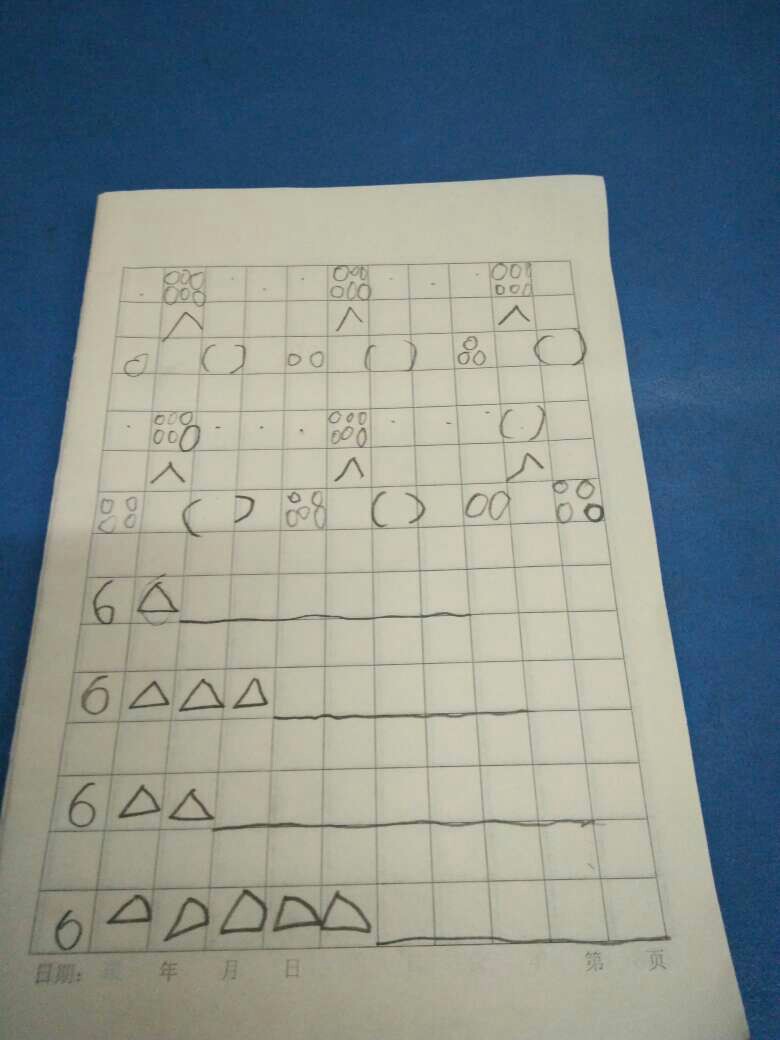 ( ) ( ) ( )
( )
( ) ( )
6
6
6
6
日期: 年 月 日 第 页